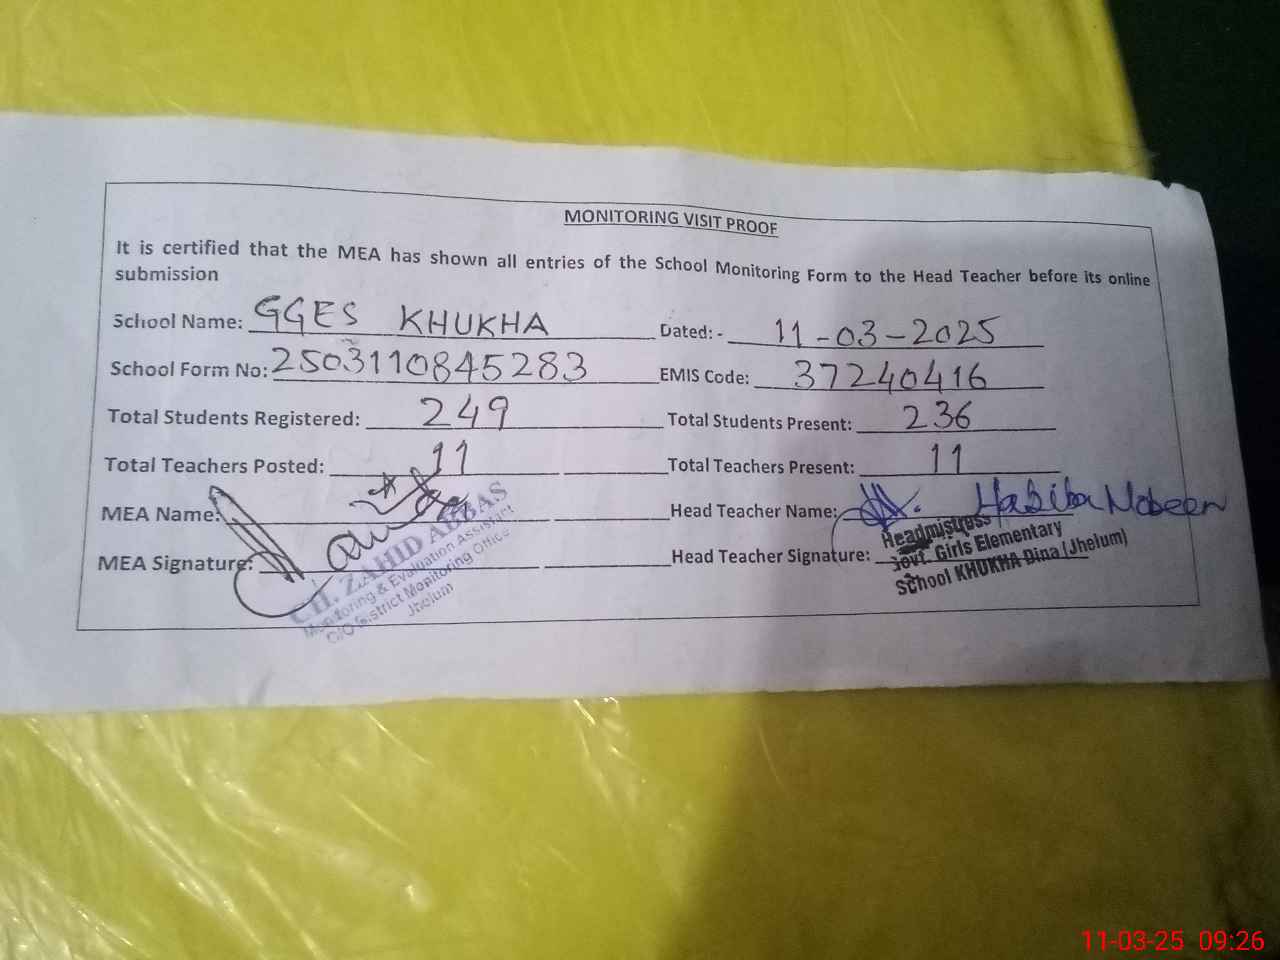 MONITORING VISIT PROOF
It is certified that the MEA has shown all entries of the School Monitoring Form to the Head Teacher before its online
submission
School Name: GGES KHUKHA Dated: - 11-03-2025
School Form No: 2503110845283 EMIS Code: 37240416
Total Students Registered: 249 Total Students Present: 236
Total Teachers Posted: 11 Total Teachers Present: 11
MEA Name: Head Teacher Name: Habiba Nobeen
MEA Signature: Head Teacher Signature:
CH. ZAHID ABBAS
Monitoring & Evaluation Assistant
C/O District Monitoring Office
Jhelum
Headmistress
Govt. Girls Elementary
School KHUKHA Dina (Jhelum)
11-03-25 09:26